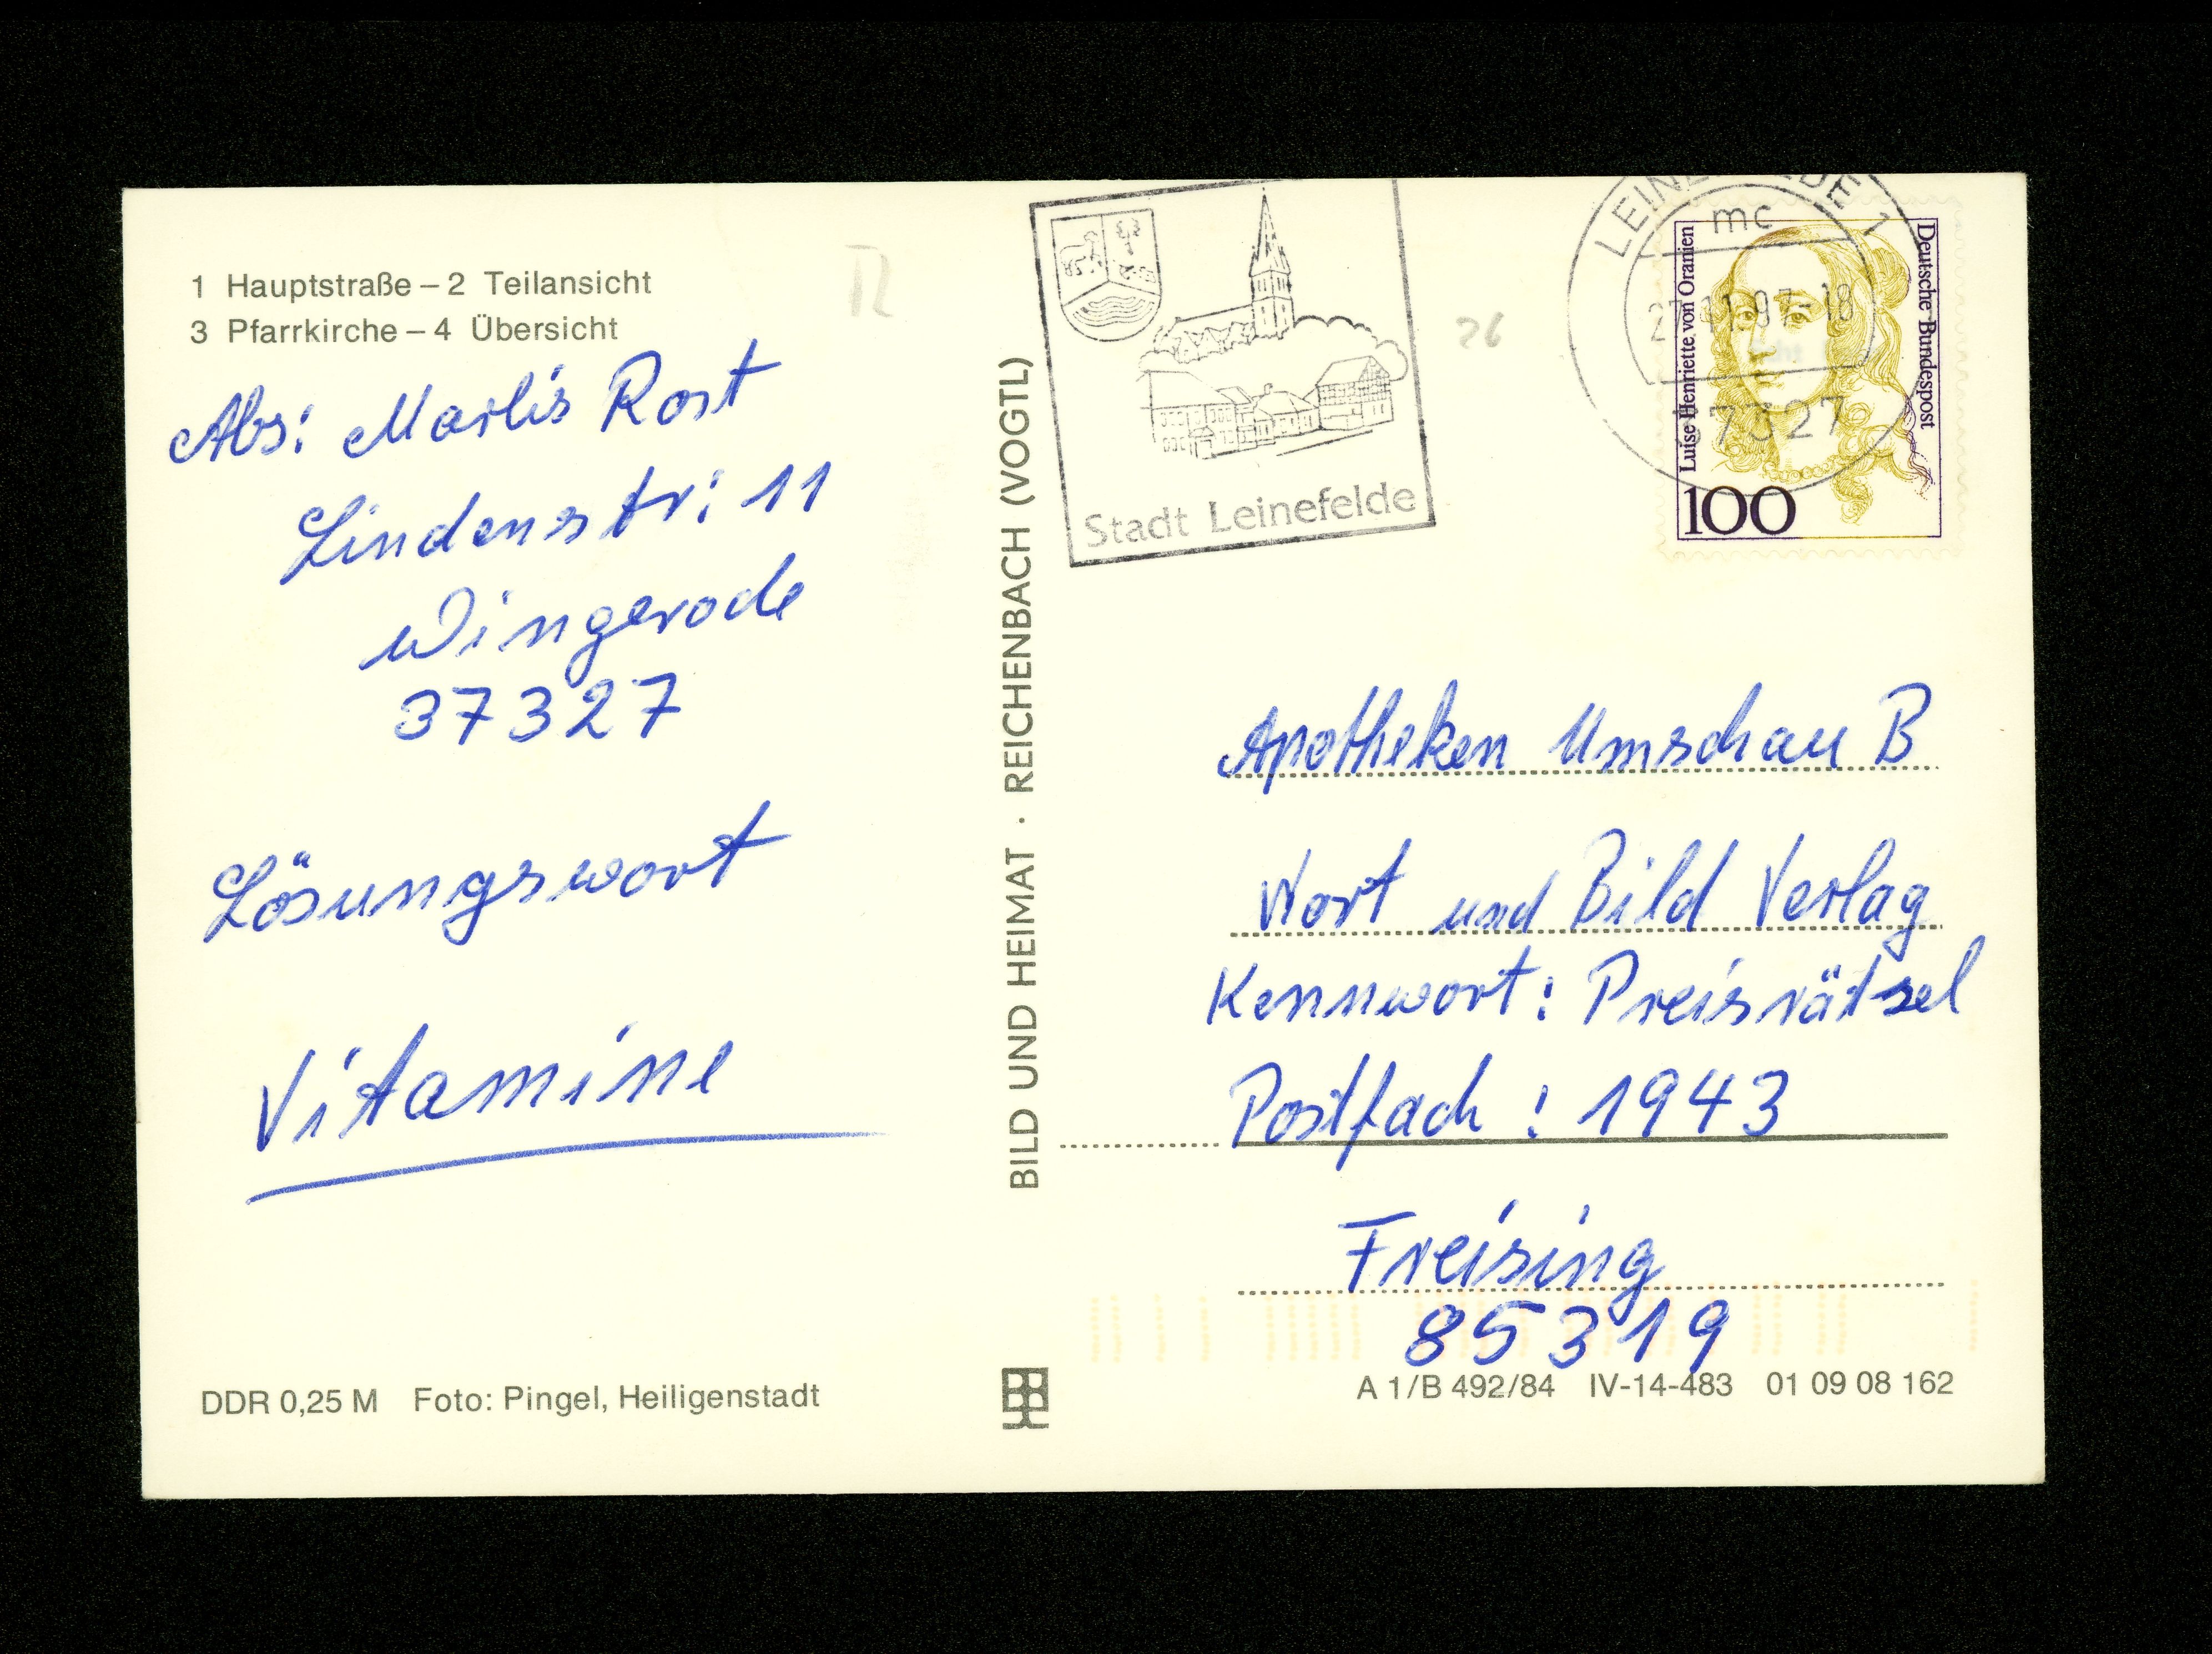 1 Hauptstraße – 2 Teilansicht
3 Pfarrkirche – 4 Übersicht
Abs: Marlis Rost
Lindenstr: 11
Wingerode
37327
Lösungswort
Vitamine
DDR 0,25 M Foto: Pingel, Heiligenstadt
BILD UND HEIMAT · REICHENBACH (VOGTL)
Stadt Leinefelde
26
mc
27.11.97-18
37327
Luise Henriette von Oranien
Deutsche Bundespost
100
Apotheken Umschau B
Wort und Bild Verlag
Kennwort: Preisrätsel
Postfach: 1943
Freising
85319
A 1/B 492/84 IV-14-483 01 09 08 162